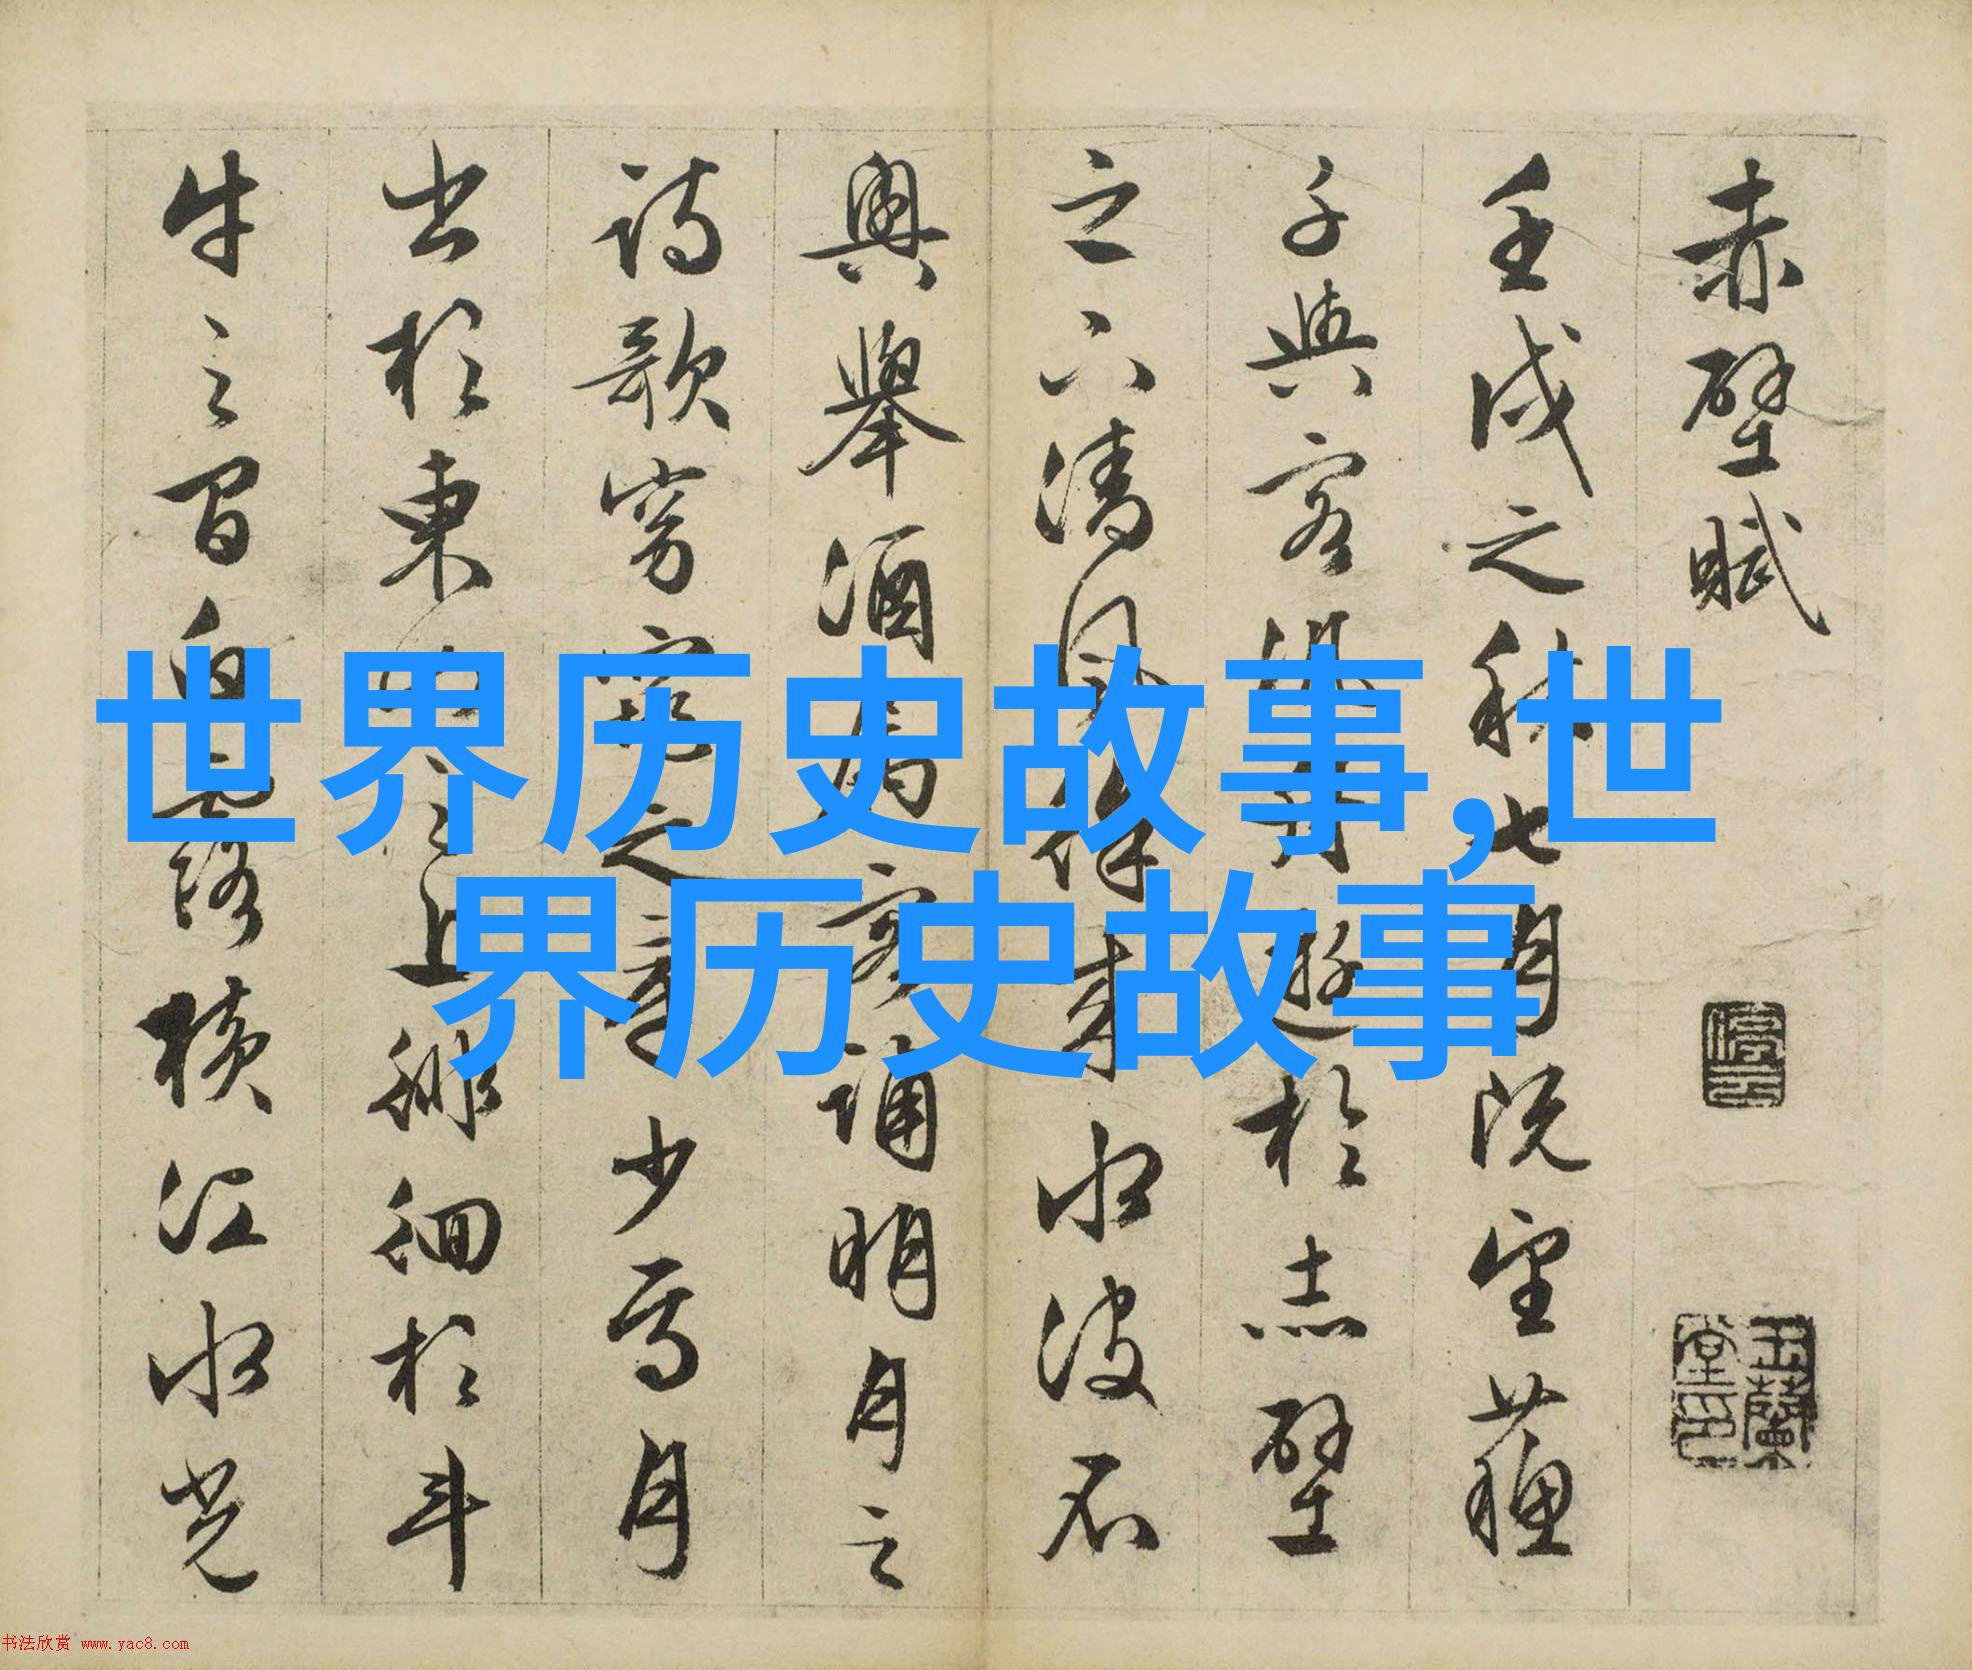 赤壁賦
壬戌之秋七月既望蘇
子與客泛舟遊於赤壁
之下清風徐來水波不
興舉酒屬客誦明月之
詩歌窈窕之章少焉月
出於東山之上徘徊於斗
牛之間白露橫江水光
停雲
玉蘭堂印
世界历史故事,世
界历史故事
书法欣赏 www.yac8.com